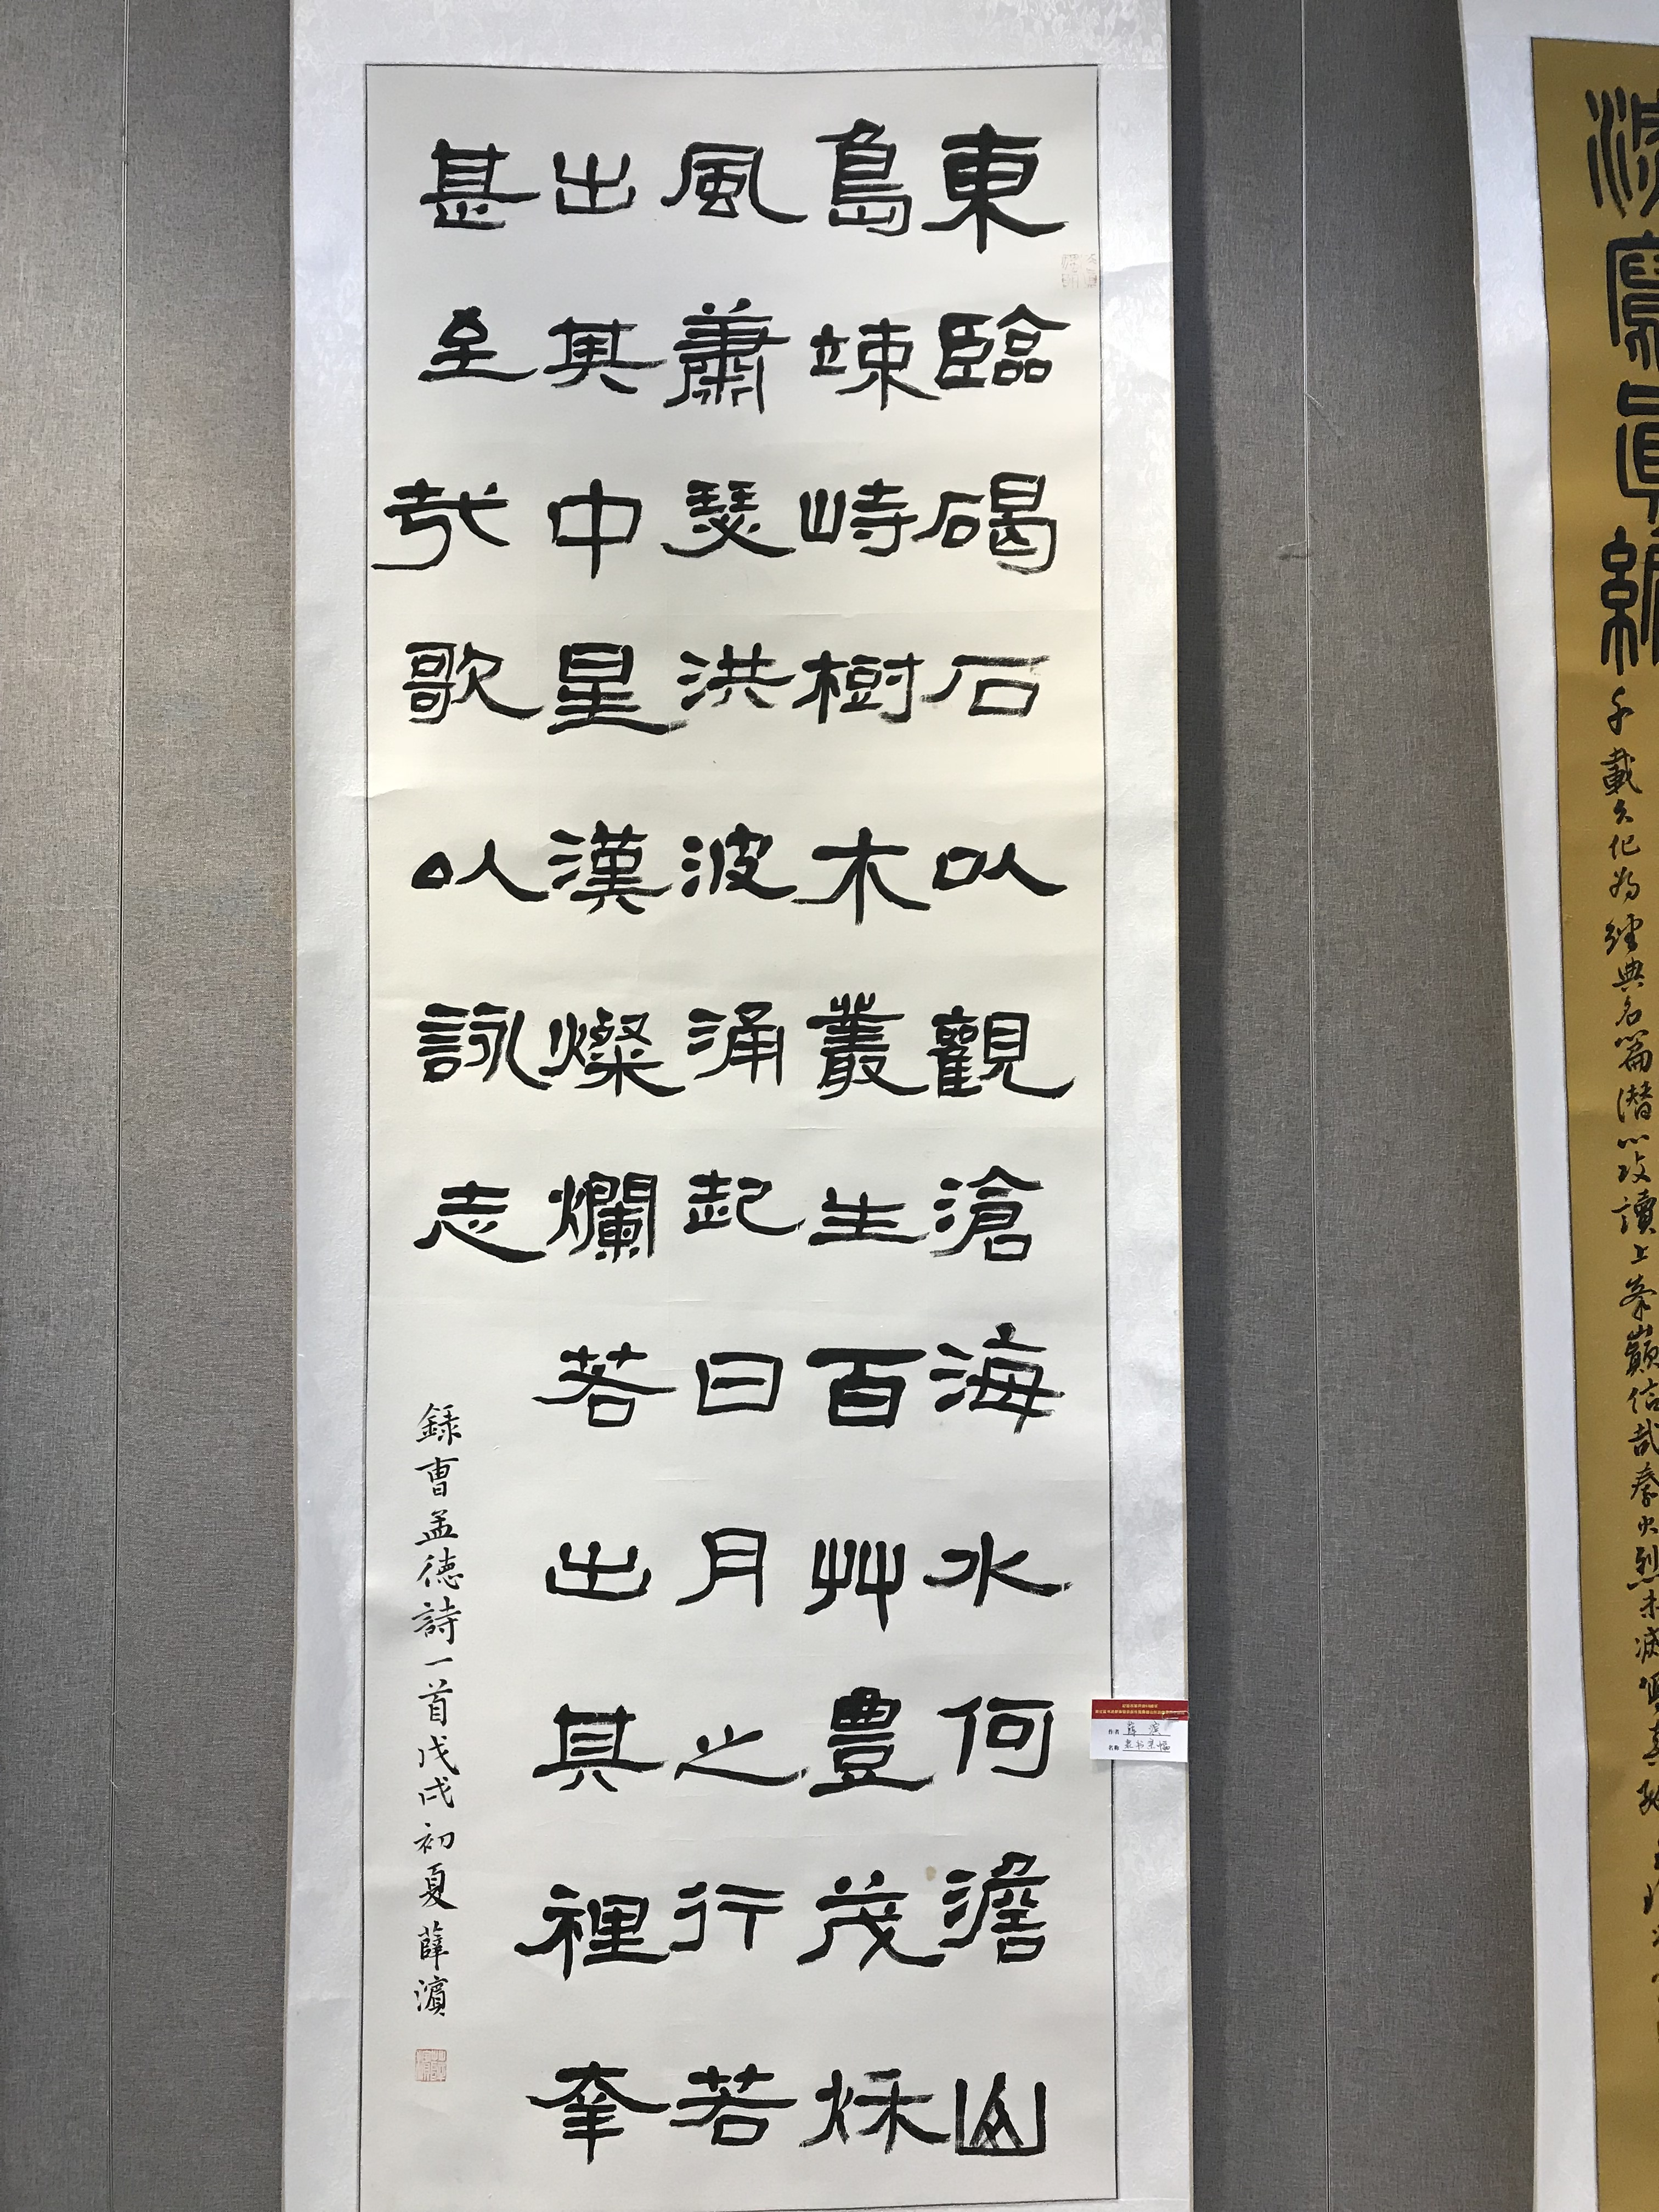 東臨碣石以觀滄海水何澹山
島竦峙樹木叢生百艸豊茂秌
風蕭瑟洪波涌起日月之行若
出其中星漢燦爛若出其裡幸
甚至哉歌以詠志
錄曹孟德詩一首戊戌初夏薛濵
作者 薛濵
名称 隶书条幅
千載文化為經典名篇潜心攻讀上峯巔信哉秦火烈未滅